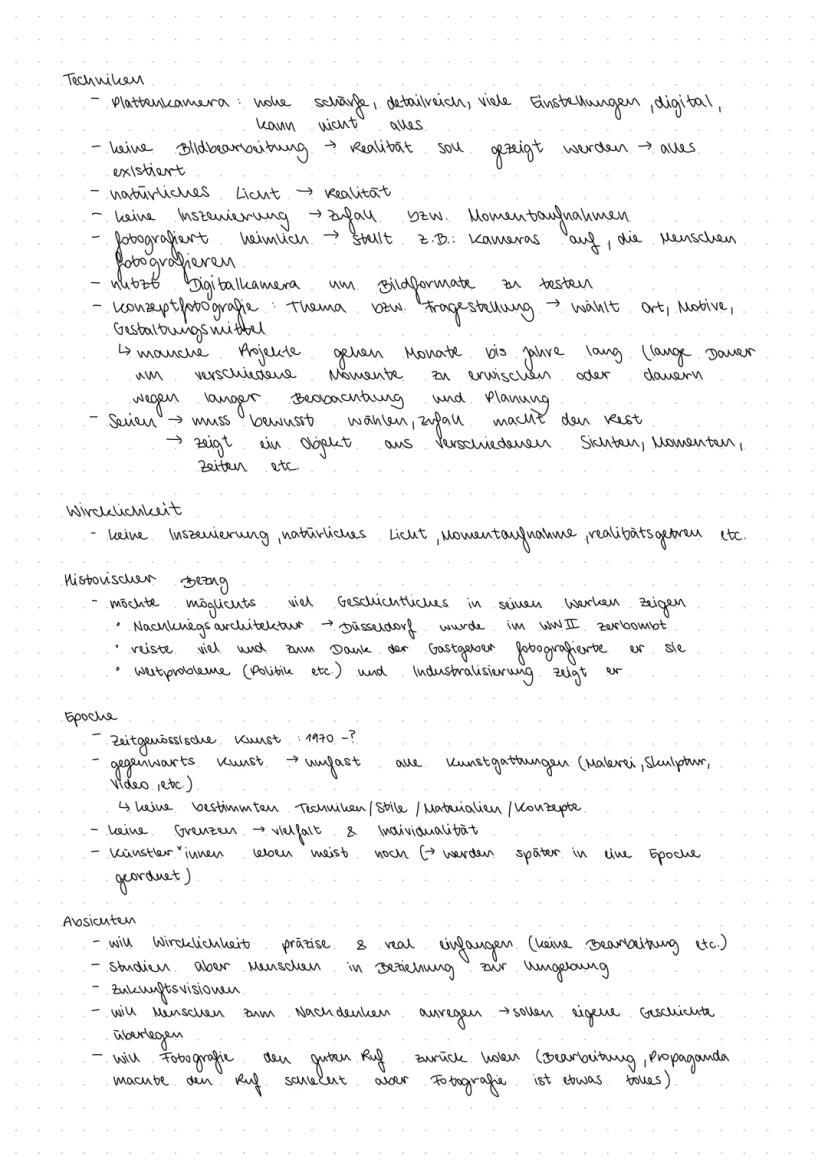 Techniken
- Plattenkamera : hohe schärfe, detailreich, viele Einstellungen, digital,
kann nicht alles
- keine Bildbearbeitung → Realität soll gezeigt werden → alles
existiert
- natürliches Licht → Realität
- keine Inszenierung → Zufall bzw. Momentaufnahmen
- fotografiert heimlich → stellt z.B.: Kameras auf, die Menschen
fotografieren
- nutzt Digitalkamera um Bildformate zu testen
- Konzeptfotografie : Thema bzw. Fragestellung → wählt Ort, Motive,
Gestaltungsmittel
↳ manche Projekte gehen Monate bis Jahre lang (lange Dauer
um verschiedene Momente zu erwischen oder dauern
wegen langer Beobachtung und Planung
- Serien → muss bewusst wählen, Zufall macht den Rest
→ zeigt ein Objekt aus verschiedenen Sichten, Momenten,
Zeiten etc.
Wircklichkeit
- keine Inszenierung, natürliches Licht, Momentaufnahme, realitätsgetreu etc.
Historischer Bezug
- möchte möglichts viel Geschichtliches in seinen Werken zeigen
• Nachkriegsarchitektur → Düsseldorf wurde im WWII zerbombt
• reiste viel und zum Dank der Gastgeber fotografierte er sie
• Weltprobleme (Politik etc.) und Industralisierung zeigt er
Epoche
- Zeitgenössische Kunst : 1970 -?
- gegenwarts Kunst → umfast alle Kunstgattungen (Malerei, Skulptur,
Video, etc.)
↳ keine bestimmten Techniken / Stile / Materialien / Konzepte
- keine Grenzen → vielfalt & Individualität
- Künstler*innen leben meist noch (→ werden später in eine Epoche
geordnet)
Absichten
- will Wircklichkeit präzise & real einfangen (keine Bearbeitung etc.)
- Studien über Menschen in Beziehung zur Umgebung
- Zukunftsvisionen
- will Menschen zum Nachdenken anregen → sollen eigene Geschichte
überlegen
- will Fotografie den guten Ruf zurück holen (Bearbeitung, Propaganda
machte den Ruf schlecht aber Fotografie ist etwas tolles)